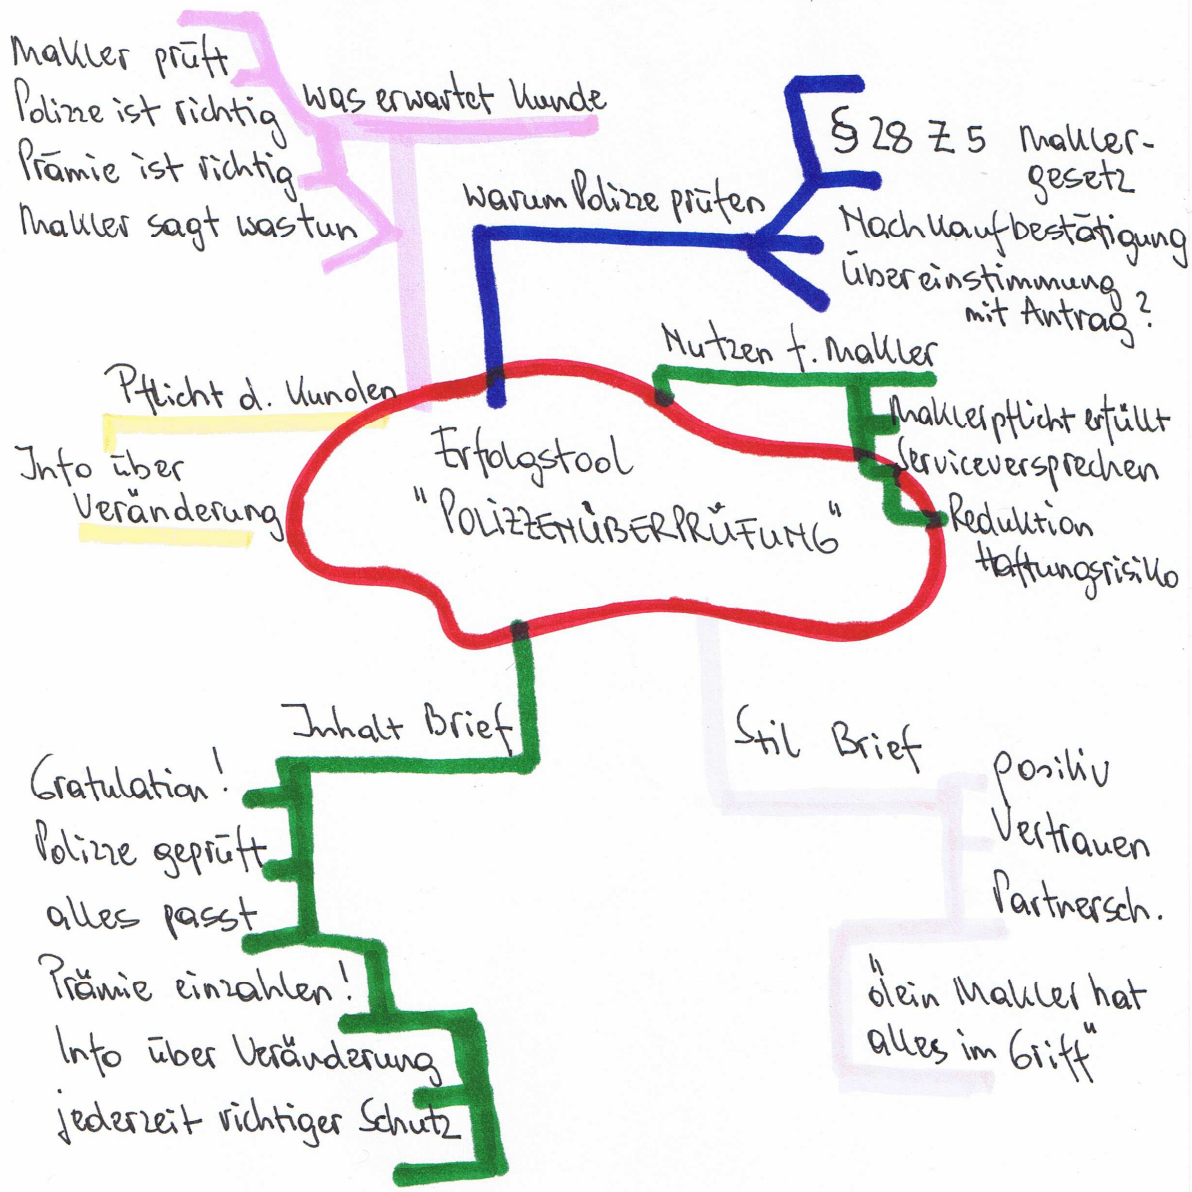 Makler prüft
Polizze ist richtig
Prämie ist richtig
Makler sagt was tun
was erwartet Kunde
warum Polizze prüfen
§ 28 Z 5 Makler-
gesetz
Nachkaufbestätigung
Übereinstimmung
mit Antrag?
Nutzen f. Makler
Maklerpflicht erfüllt
Serviceversprechen
Reduktion
Haftungsrisiko
Pflicht d. Kunden
Info über
Veränderung
Erfolgstool
"POLIZZENÜBERPRÜFUNG"
Inhalt Brief
Gratulation!
Polizze geprüft
alles passt
Prämie einzahlen!
Info über Veränderung
jederzeit richtiger Schutz
Stil Brief
positiv
Vertrauen
Partnersch.
"dein Makler hat
alles im Griff"